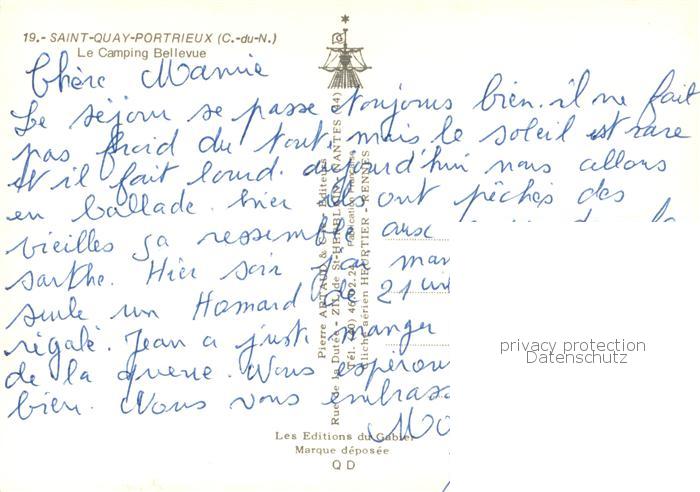 19.- SAINT-QUAY-PORTRIEUX (C.-du-N.)
Le Camping Bellevue
Chère Mamie
Le séjour se passe toujours bien. il ne fait
pas froid du tout, mais le soleil est rare
et il fait lourd. aujourd'hui nous allons
en ballade. hier ils ont pêchés des
vieilles ça ressemble aux
sarthe. Hier soir j'ai man
seule un Homard de 21
régalé. Jean a juste manger
de la queue. Nous espérons
bien. Nous vous embrass
Mo
Pierre ARTAUD & Editeurs
Rue de la Dutée - Z.I. de St-HERBLAIN - NANTES (44)
Tél. (40) 46.02.24 - Publication Française
Cliché aérien HEURTIER - RENNES
Les Editions du Gabier
Marque déposée
QD
privacy protection
Datenschutz